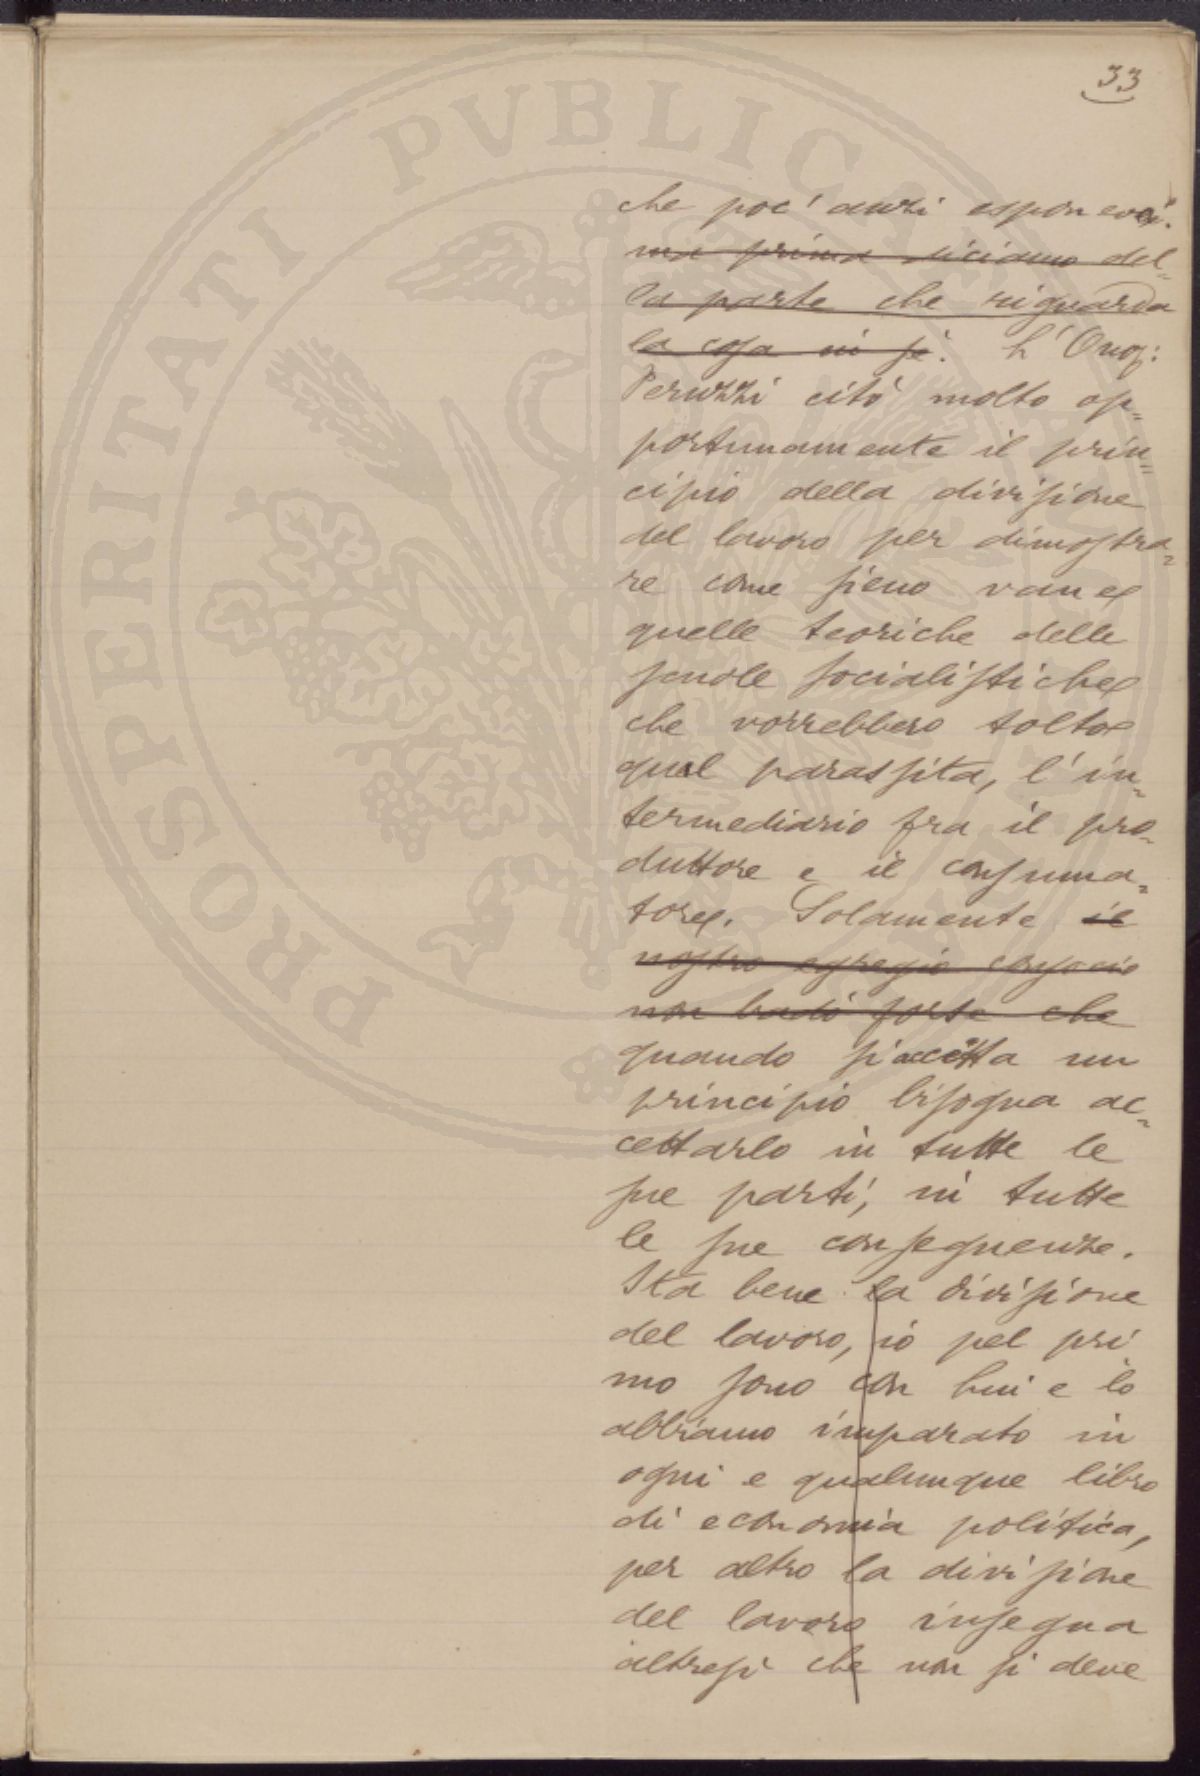 33
che poc' anzi esponevai.
ma prima diciamo del=
la parte che riguarda
la cosa in sè. L' Onor:
Peruzzi citò molto op=
portunamente il prin=
cipio della divisione
del lavoro per dimostra=
re come sieno vane
quelle teoriche delle
scuole socialistiche
che vorrebbero tolto
quel parassita, l' in=
termediario fra il pro=
duttore e il consuma=
tore. Solamente il
nostro egregio consocio
non badò forse che
quando si accetta un
principio bisogna ac=
cettarlo in tutte le
sue parti, in tutte
le sue conseguenze.
Sta bene la divisione
del lavoro, io pel pri
mo sono con lui e lo
abbiamo imparato in
ogni e qualunque libro
di economia politica,
per altro la divisione
del lavoro insegna
altresì che non si deve
PROSPERITATI PVBLICAE